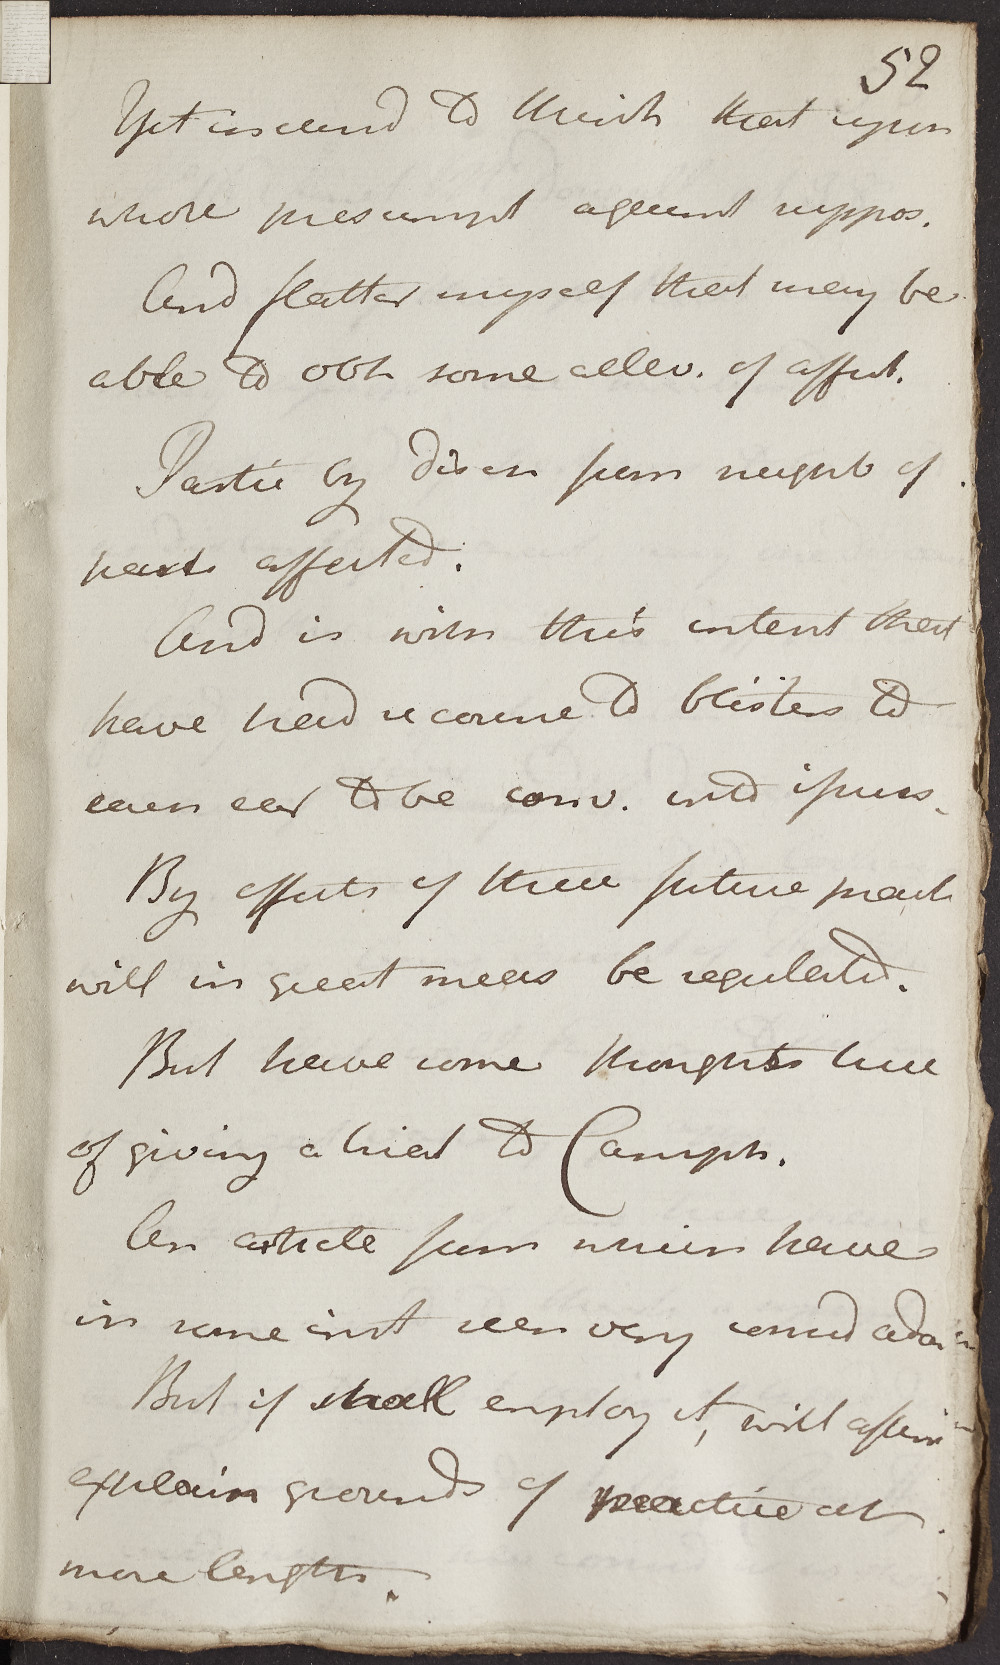 52
Yet inclind to think that upon
whole presumpt against suppos.
And flatter myself that may be
able to obt some allev. of affect.
Partic by discn from neighb of
parts affected.
And is with this intent that
have had recourse to blisters to
each ear to be conv. into issues.
By effects of these future pract
will in great meas be regulated.
But have some thoughts here
of giving a trial to Camph.
An article from which have
in some inst seen very consid adva
But if shall employ it, will afterw
explain grounds of practice at
more length.